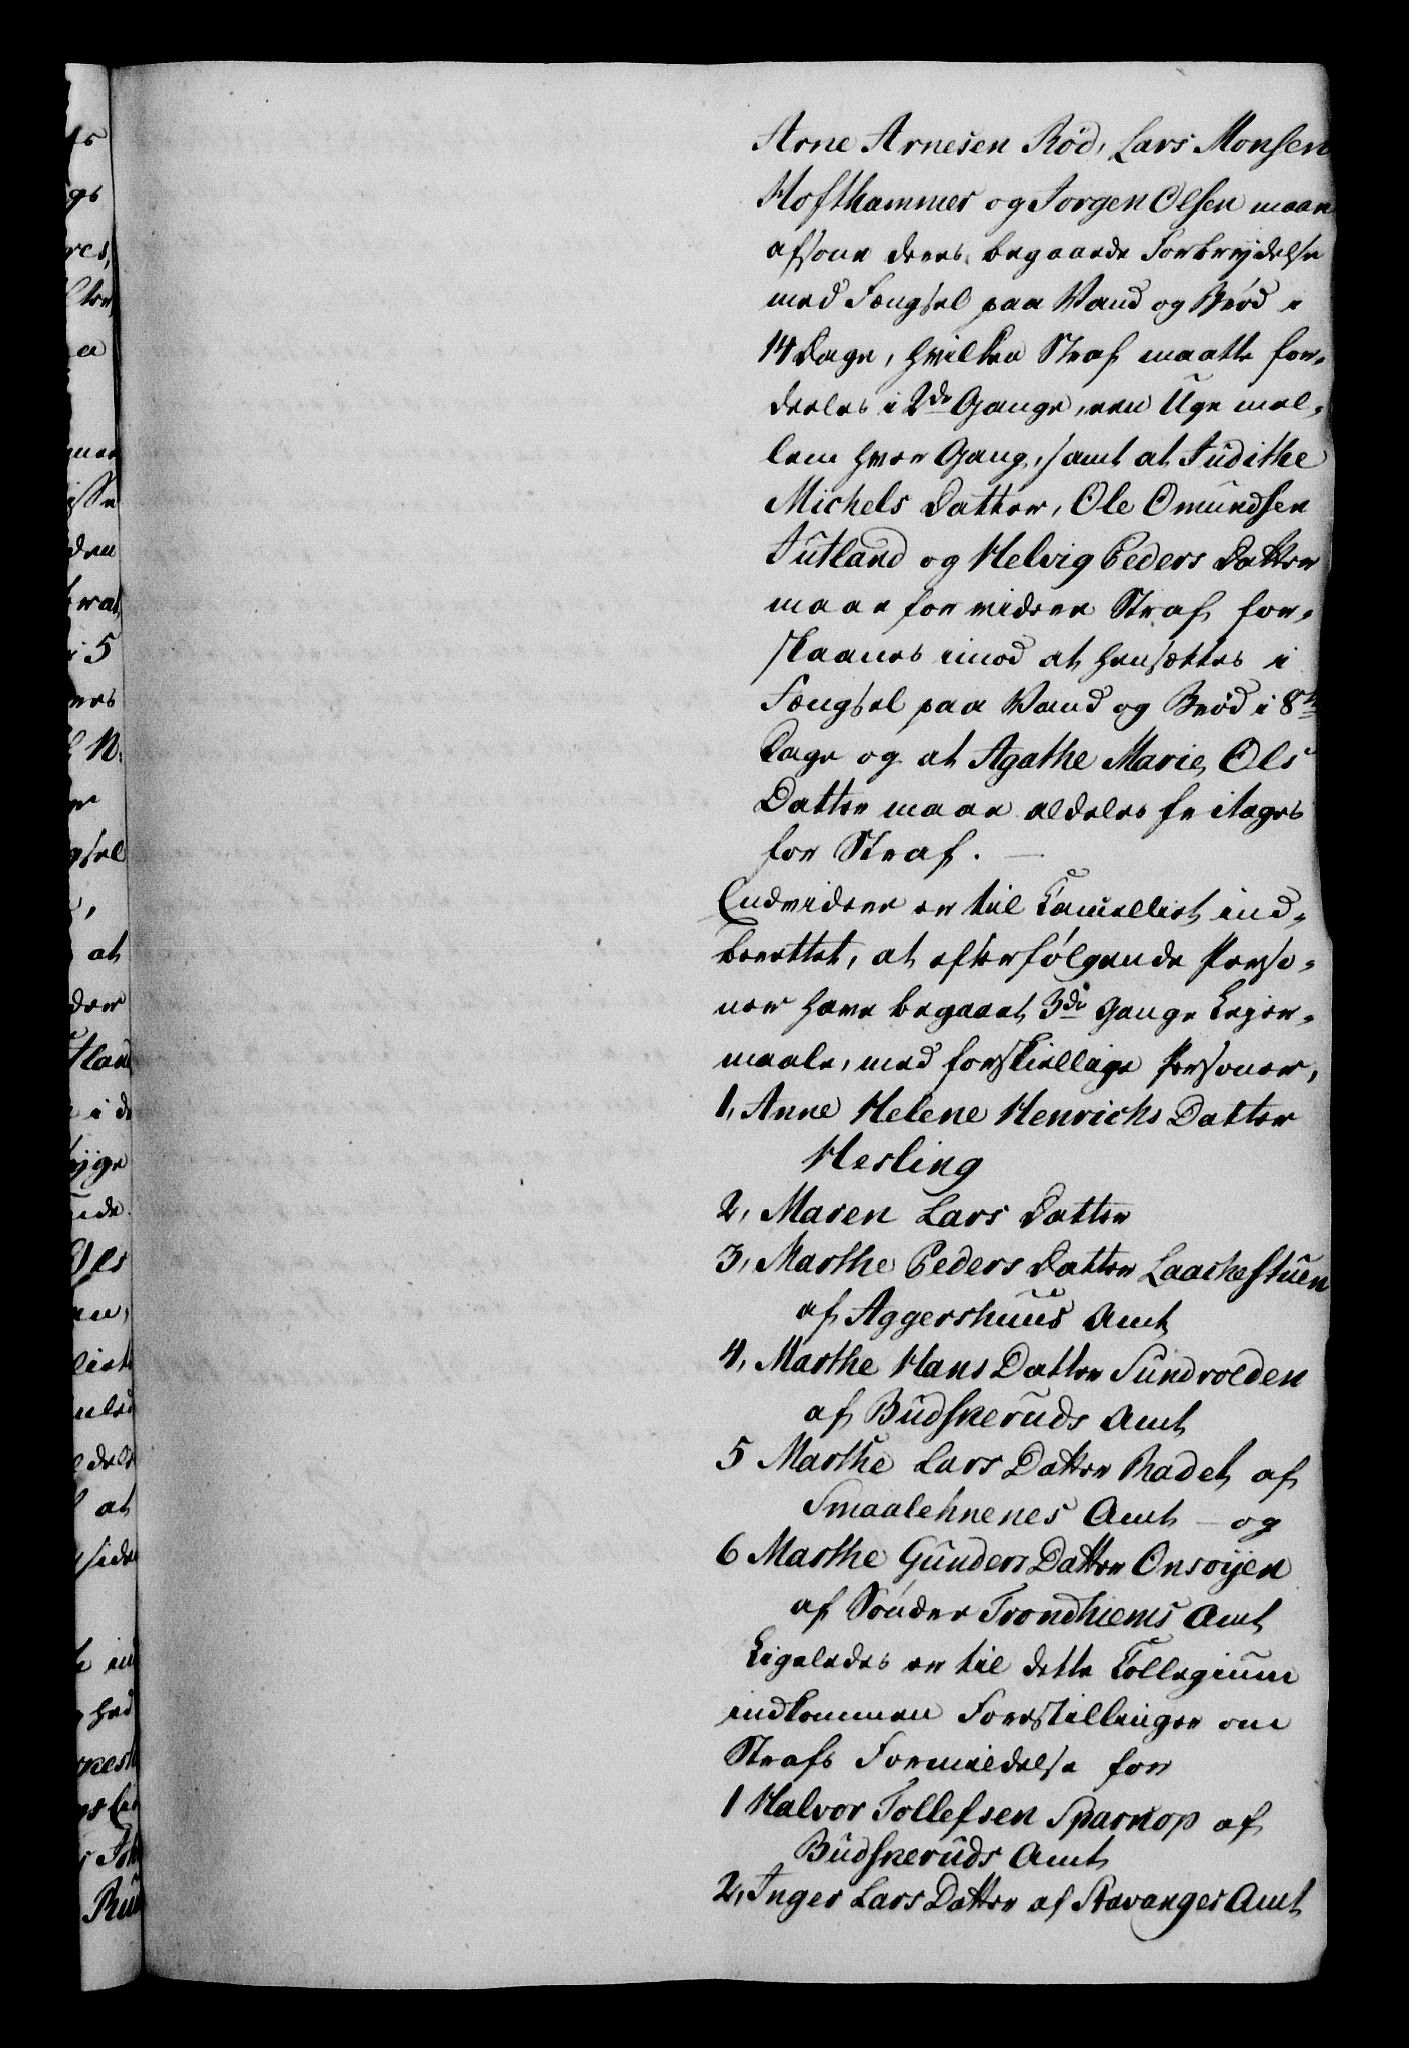 Arne Arnesen Röd, Lars Monsen
Hofthammer og Jørgen Olsen maae
afsone deres begaaede Forbrydelse
med Fængsel paa Vand og Brød i
14 Dage, hvilken Straf maatte for-
deeles i 2de Gange, een Uge mel-
lem hver Gang, samt at Judithe
Michels Datter, Ole Omundsen
Jutland og Helvig Peders Datter
maae for videre Straf for-
skaanes imod at hensættes i
Fængsel paa Vand og Brød i 8te
Dage og at Agathe Marie Ols
Datter maae aldeles fritages
for Straf. —
Endvidere er til Cancelliet ind-
berettet, at efterfølgende Perso-
ner have begaaet 3de Gange Leier-
maale, med forskiellige Personer,
1, Anne Helene Henrichs Datter
Hesling
2, Maren Lars Datter
3, Marthe Peders Datter Laachestuen
af Aggershuus Amt
4, Marthe Hans Datter Sundvolden
af Budskeruds Amt
5 Marthe Lars Datter Radet af
Smaalehnenes Amt – og
6 Marthe Gunders Datter Onsoyen
af Sønder Trondhiems Amt
Ligeledes er til dette Collegium
indkommen Forestillinger om
Strafs Formildelse for
1 Halvor Tollefsen Sparnop af
Budskeruds Amt
2, Inger Lars Datter af Stavanger Amt